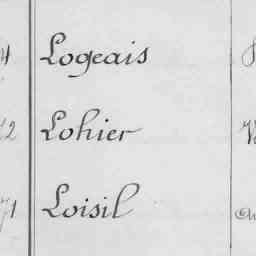 4 Logeais
2 Lohier
71 Loisil